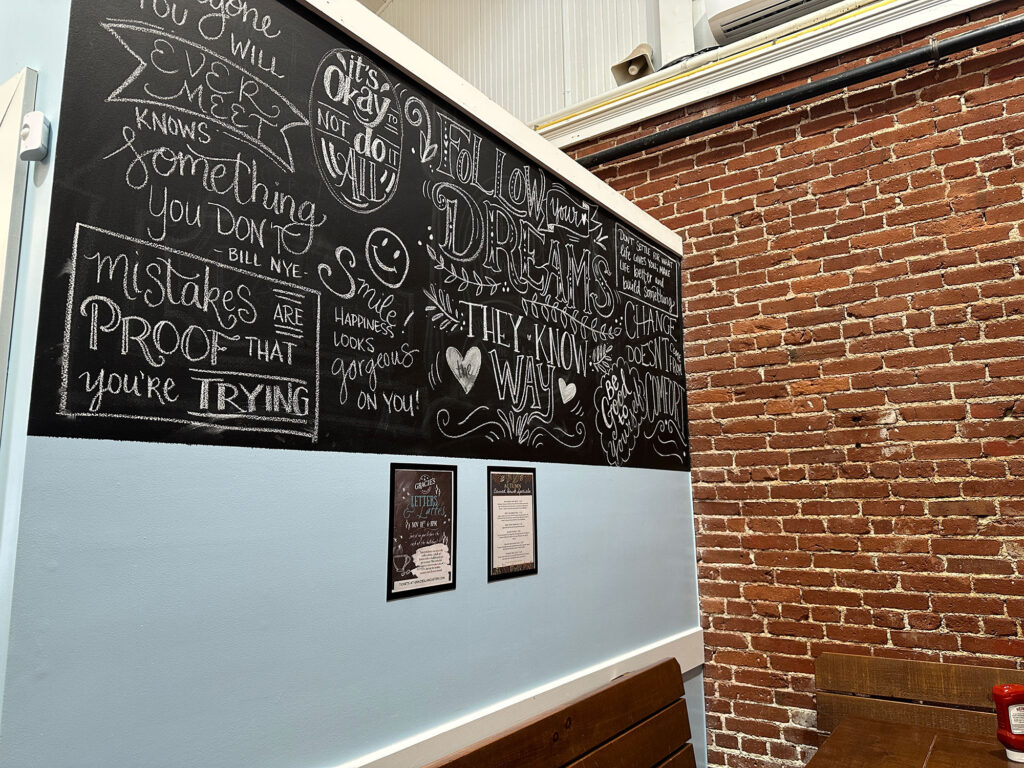 Everyone
YOU WILL
EVER
MEET
KNOWS
something
YOU DON'T
- BILL NYE -
mistakes ARE
PROOF THAT
you're TRYING
it's
Okay TO
NOT
do IT
All
Smile!
HAPPINESS
LOOKS
gorgeous
ON YOU!
FOLLOW your
DREAMS
THEY KNOW
the WAY
DON'T SETTLE FOR WHAT
LIFE GIVES YOU, MAKE
LIFE better and
build something!
CHANGE
DOESN'T COME
FROM
COMFORT
BE
GOOD
to
GRACIE'S
LETTERS
& Lattes
NOV 18th 6-8PM
AUTUMN